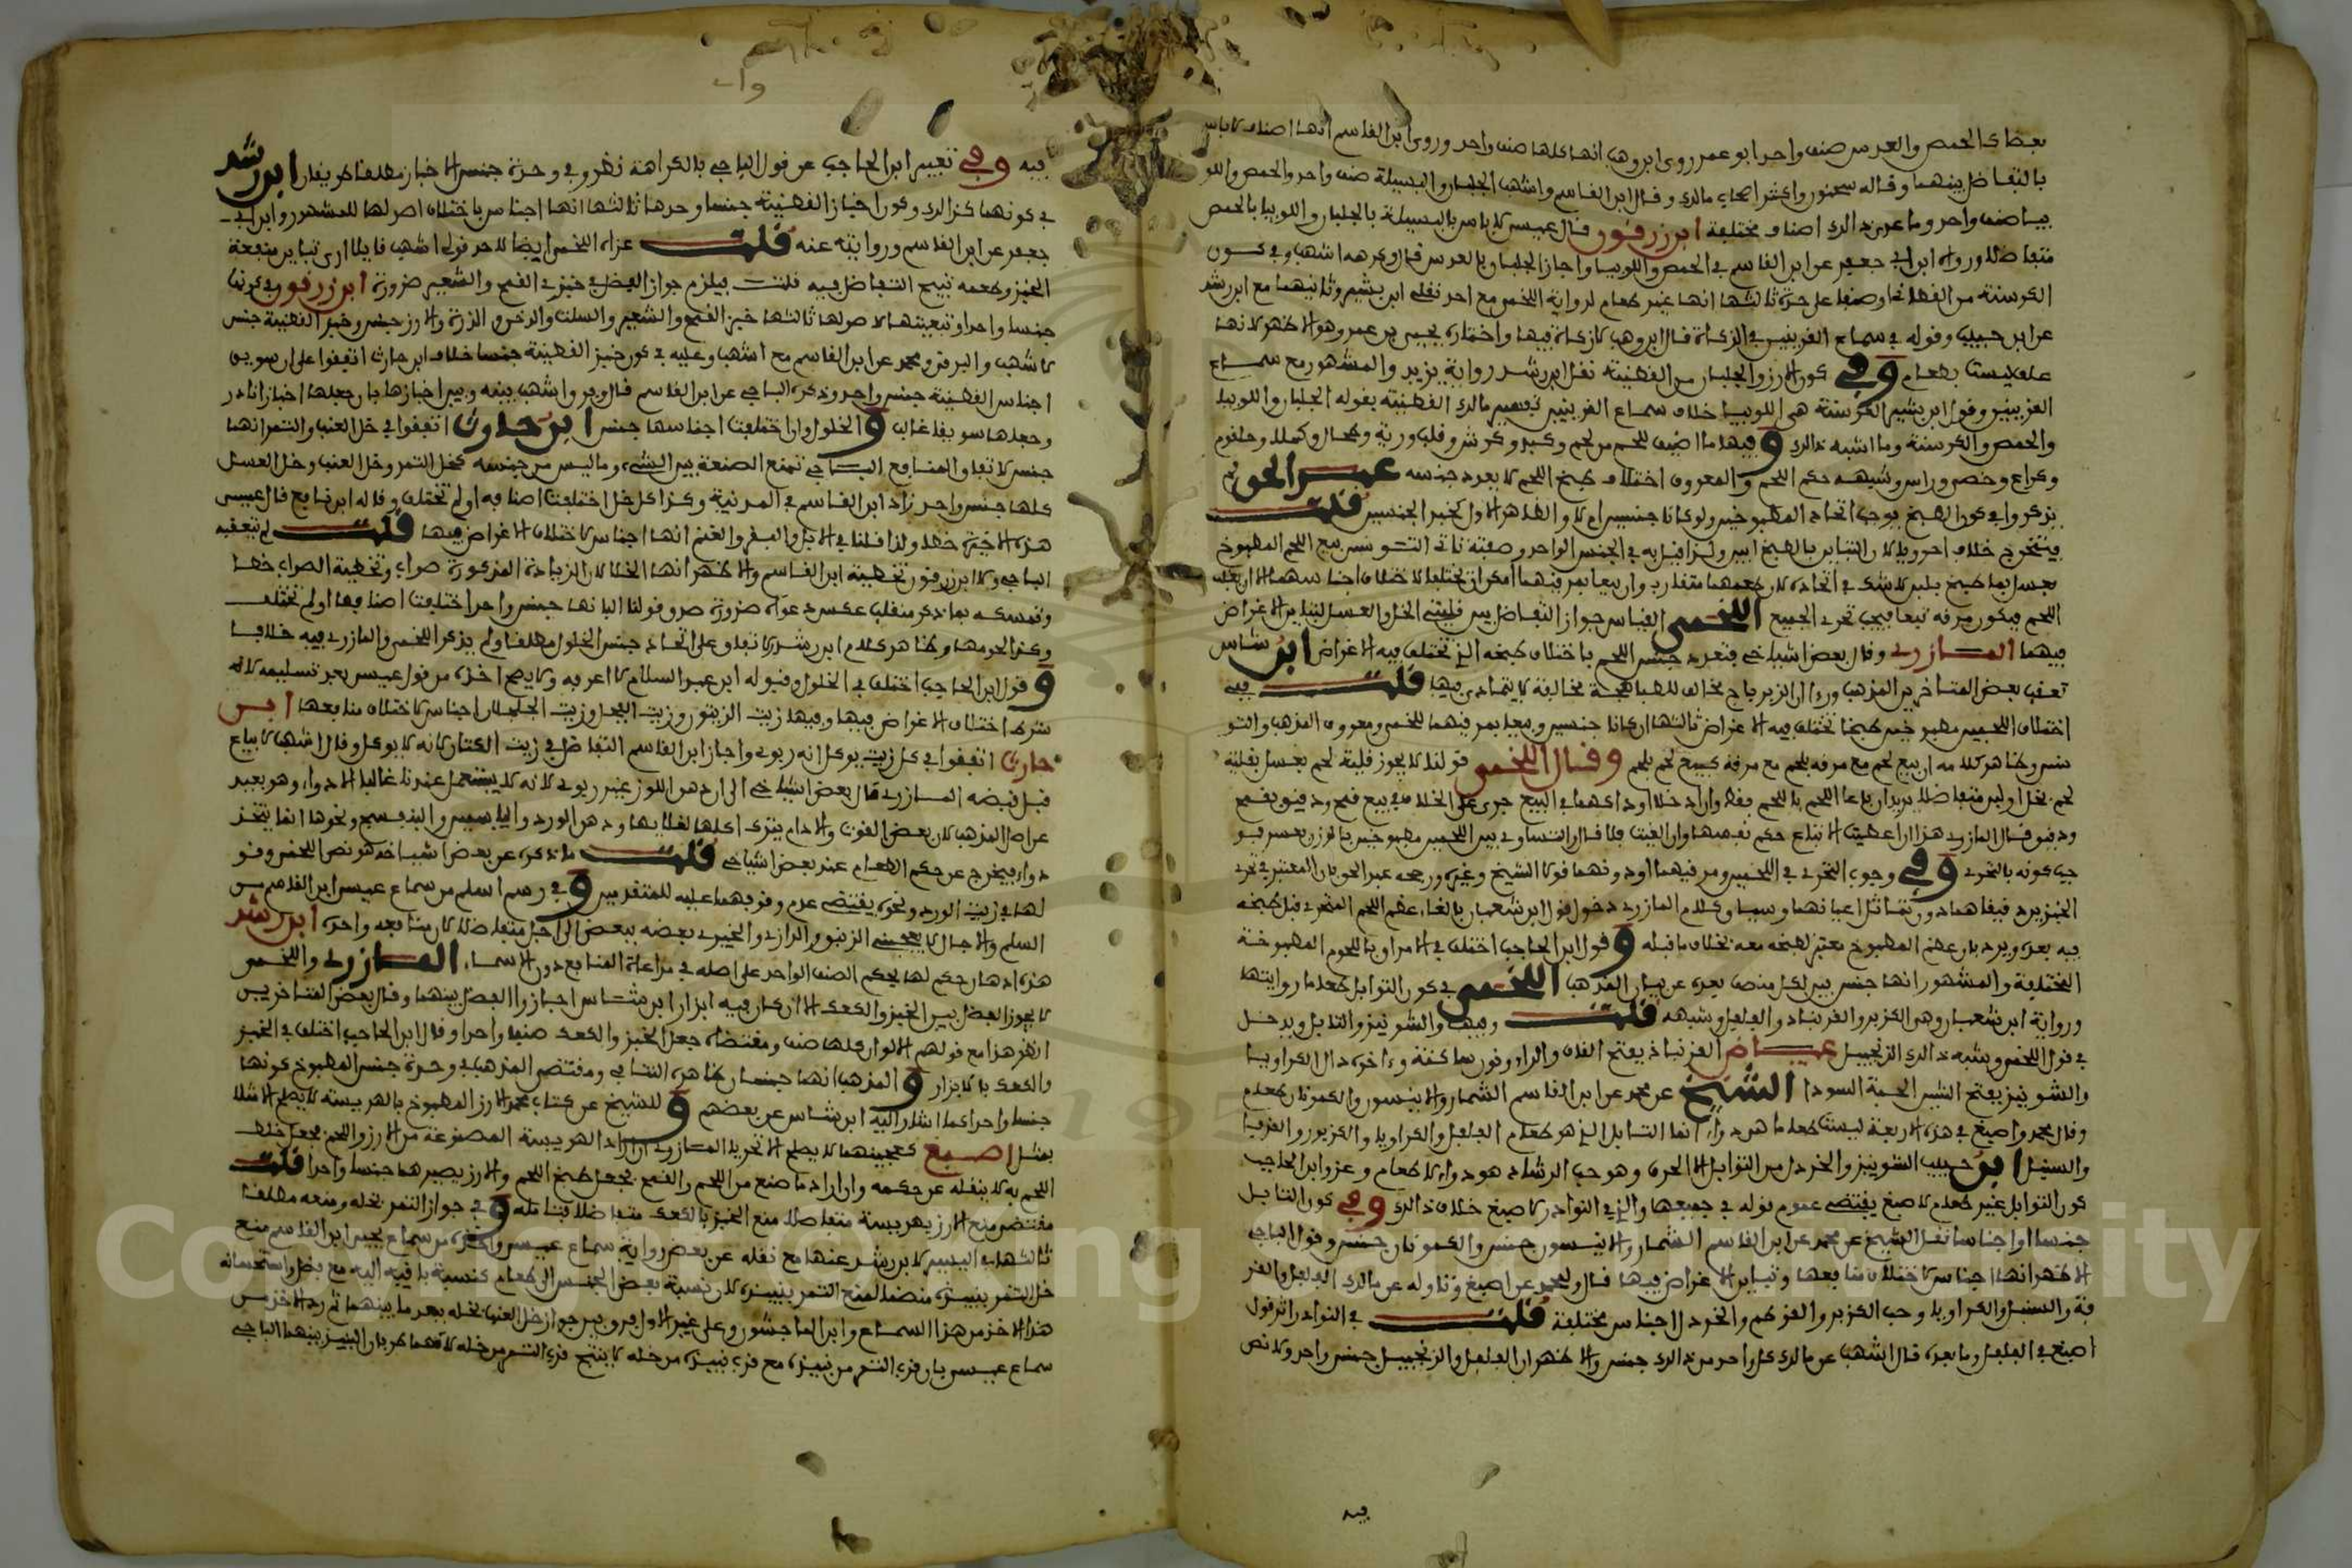 بعضا كالحمص والعدس صنف واحد ابو عمر روى ابن وهب انها كلها صنف واحد وروى ابن القاسم انها اصناف لا باس
بالتفاضل بينهما وقاله سحنون واكثر اصحاب مالك وقال ابن القاسم واشهب الجلبان والبسيلة صنف واحد والحمص واللو
بيا صنف واحد وما عدى ذلك اصناف مختلفة ابن زرقون قال عيسى لا باس بالبسيلة بالجلبان واللوبيا بالحمص
متفاضلا ورواه ابن ابي جعفر عن ابن القاسم في الحمص واللوبيا واجاز الجلبان بالعدس قال وكرهه اشهب وفي كون
الكرسنة من القطاني او صنفا على حدة ثالثها انها غير طعام لرواية اللخمي مع احد نقلي ابن بشير وثانيهما مع ابن رشد
عن ابن حبيب وقوله في سماع القرينين في الزكاة قال ابن وهب لا زكاة فيها واختاره يحيى بن عمر وهو الاظهر لانها
علف ليست بطعام وفي كون الارز والجلبان من القطنية نقل ابن رشد رواية يزيد والمشهور مع سماع
القرينين وقول ابن بشير الكرسنة هي اللوبيا خلاف سماع القرينين تفسير مالك القطنية بقوله الجلبان واللوبيا
والحمص والكرسنة وما اشبه ذلك وفيها ما اضيف للحم من لحم وكبد وكرش وقلب ورية وطحال وكلا وحلقوم
وكراع وخصى وراس وشبهه حكم اللحم والمعروف اختلاف طبخ اللحم لا يعدد جنسه عبد الحق لم
يذكروا في كون الطبخ يوجب اتحاد المطبوخين ولو كانا جنسين ام لا والظاهر الاول كخبز الجنسين قلت
فيتخرج خلاف احرويا لان التباين بالطبخ ابين ولذا قيل به في الجنس الواحد وصفة نا في التو نسي بيع اللحم المطبوخ
بعسل بما طبخ بلبن لا شك في اتحاده لان طعمهما متقارب وان بيعا بمرقيهما امكن ان تختلفا لاختلاف اجناسهما الا ان يغلب
اللحم فيكون مرقه تبعا فيجب تحري الجميع اللخمي القياس جواز التفاضل بين قليتي الخل والعسل لتباين الاغراض
فيهما المازري وقال بعض اشياخي يتعدد جنس اللحم باختلاف طبخه الذي تختلف فيه الاغراض ابن شاس
تعقب بعض المتاخرين المذهب وراى ان الزيرباج مخالف للطباهجة مخالفة لا يتمارى فيها قلت ففي
اختلاف اللحمين مطبوخين طبخا تختلف فيه الاغراض ثالثها ان كانا جنسين وبيعا بمرقيهما للخمي ومعروف المذهب والتو
نسي وظاهر كلامه ان بيع لحم مع مرقه بلحم مع مرقه كبيع لحم بلحم وقال اللخمي قولنا لا يجوز قلية لحم بعسل بقلية
لحم بخل او لبن متفاضلا يريد ان راعا اللحم باللحم فقط وان اراد خلا او داكهما في البيع جرى على الخلاف في بيع قمح ودقيق بقمح
ودقيق قال المازري هذا ان اعطيت الاتباع حكم نفسها وان الغيت فلا قال والتساوي بين اللحمين مطبوخين بالوزن بعسر فو
جب كونه بالتحري وفي وجوب التحري في اللحمين ومرقيهما او دونهما قولا الشيخ وغيره ورجحه عبد الحق بان المعتبر في تحري
الخبز يرد قيقاهما دون تماثل اعيانهما وسيا وكلام المازري دخول قول ابن شعبان بالغاء عظم اللحم المتحرى قبل طبخه
فيه بعده ويرد بان عظم المطبوخ معتبر لطبخه معه بخلاف ما قبله وقول ابن الحاجب اختلف في الامراق باللحوم المطبوخة
المختلفة والمشهور انها جنس بين لكل منصف يعزى عن بيان المذهب اللخمي في كون التوابل طعاما روايتها
ورواية ابن شعبان وهي الكزبر والقرنباد والفلفل وشبهه قلت وفيها والشونيز والتابل ويدخل
في قول اللخمي وشبه ذلك الزنجبيل عياض القرنباذ بفتح القاف والراء ونون ساكنة وءاخره دال الكراويا
والشونيز بفتح الشين الحبة السودا الشيخ عن محمد عن ابن القاسم الشمار والانيسون والكمونان طعام
وقال محمد واصبغ في هذه الاربعة ليست طعاما هي دواء انما التابل الذي هو طعام الفلفل والكراويا والكزبور والقرفا
والسنبل ابن حبيب الشونيز والخردل من التوابل الا الحرف وهو حب الرشاد هو دواء لا طعام وعزو ابن الحاجب
كون التوابل غير طعام لاصبغ يقتضي عموم قوله في جميعها والذي في النوادر لاصبغ خلاف ذلك وفي كون التابل
جنسا او اجناسا نقل الشيخ عن محمد عن ابن القاسم الشمار والانيسون جنس والكمونان جنس وقول الباجي
الاظهر انها اجناس لاختلاف منافعها وتباين الاغراض فيها قال ولمحمد عن اصبغ وتاوله عن مالك الفلفل والقر
فة والسنبل والكراويا وحب الكزبر والقرطم والخردل اجناس مختلفة قلت في النوادر اثر قول
اصبغ في الفلفل وما بعده قال اشهب عن مالك كل واحد من ذلك جنس والاظهر ان الفلفل والزنجبيل جنس واحد ولا نص
فيه
فيه وفي تعبير ابن الحاجب عن قول الباجي بالكراهة نظر وفي وحدة جنس الاخباز مطلقا طريقان ابن رشد
في كونهما كذلك وكون اخباز القطنية جنسا وحدها ثالثها انها اجناس باختلاف اصولها للمشهور وابن ابي
جعفر عن ابن القاسم وروايته عنه قلت عزاه اللخمي ايضا لاحد قولي اشهب قايلا ارى تباين منفعة
الخبز وطعمه تبيح التفاضل فيه قلت فيلزم جواز الفضل في خبزي القمح والشعير ضرورة ابن زرقون في كونها
جنسا واحدا وتبعيتها لاصولها ثالثها خبز القمح والشعير والسلت والدخن والذرة والارز جنس وخبز القطنية جنس
لاشهب والبرقي ومحمد عن ابن القاسم مع اشهب وعليه في كون خبز القطنية جنسا خلاف ابن حارث اتفقوا على ان سويق
اجناس القطنية جنس واحد وذكره الباجي عن ابن القاسم قال وفرق اشهب بينه وبين اخبازها بان جعلها اخبازا نادر
وجعلها سويقا غالب والخلول وان اختلفت اجناسها جنس ابن حارث اتفقوا في خل العنب والتمر انهما
جنس لاتفاق المنافع الباجي تمنع الصنعة بين الشيء وما ليس من جنسه كخل التمر وخل العنب وخل العسل
كلها جنس واحد زاد ابن القاسم في المدنية وكذا كل خل اختلفت اصنافه او لم تختلف وقاله ابن نافع قال عيسى
هذه الاخيرة خطا ولذا قلنا في الابل والبقر والغنم انها اجناس لاختلاف الاغراض فيها قلت لم يتعقبه
الباجي ولا ابن زرقون تخطية ابن القاسم والاظهر انها الخطا لان الزيادة المذكورة صواب وتخطية الصواب خطا
وتمسكه بما ذكر منقلب عكس دعواه ضرورة صدق قولنا البانها جنس واحد اختلفت اصنافها او لم تختلف
وكذا لحومها وظاهر كلام ابن رشد الاتفاق على اتحاد جنس الخلول مطلقا ولم يذكر اللخمي والمازري فيه خلافا
وقول ابن الحاجب اختلف في الخلول وقبوله ابن عبد السلام لا اعرفه ولا يصح اخذه من قول عيسى بعد تسليمه لانه
شرط اختلاف الاغراض فيها وفيها زيت الزيتون وزيت الفجل وزيت الجلجلان اجناس لاختلاف منافعها ابن
حارث اتفقوا في كل زيت يوكل انه ربوي واجاز ابن القاسم التفاضل في زيت الكتان لانه لا يوكل وقال اشهب لا يباع
قبل قبضه المازري قال بعض اشياخي الى ان دهن اللوز غير ربوي لانه لا يستعمل عندنا غالبا الا دواء وهو بعيد
عن اصل المذهب لان بعض القوت والادام يترك اكلها لغلايها ودهن الورد والياسمين والبنفسج ونحوها انما يتخذ
دواء فيخرج عن حكم الطعام عند بعض اشياخي قلت ما ذكره عن بعض اشياخه هو نص اللخمي وقو
لها في زيت الورد ونحوه يقتضي عدم وقوفهما عليه للمتقدمين وفي رسم اسلم من سماع عيسى ابن القاسم من
السلم والاجال لا يعجبني الزنبق والرازقي والخيري بعضه ببعض الى اجل متفاضلا لان منافعه واحدة ابن رشد
هذه ادهان حكم لها بحكم الصنف الواحد على اصله في مراعاة المنافع دون الاسماء المازري واللخمي
لا يجوز الفضل بين الخبز والكعك الا ان كان فيه ابزار ابن شاس اجازوا الفضل بينهما وقال بعض المتاخرين
انظر هذا مع قولهم الالوان كلها صنف ومقتضاه جعل الخبز والكعك صنفا واحدا وقال ابن الحاجب اختلف في الخبز
والكعك بالابزار والمذهب انهما جنسان ظاهره التنافي ومقتضى المذهب في وحدة جنس المطبوخ كونها
جنسا واحدا كما اشار اليه ابن شاس عن بعضهم وللشيخ عن كتاب محمد الارز المطبوخ بالهريسة لا يصلح الا مثلا
بمثل اصبغ كعجينهما لا يصلح الا تحريا المازري ان اراد الهريسة المصنوعة من الارز واللحم فجعل خلط
اللحم به لا ينقله عن حكمه وان اراد ما صنع من اللحم والقمح فجعل طبخ اللحم والارز يصيرهما جنسا واحدا قلت
مقتضى منع الارز بهريسة متفاضلا منع الخبز بالكعك متفاضلا فتامله وفي جواز التمر بخله ومنعه مطلقا
ثالثها في اليسير لابن رشد عنها مع نقله عن بعض رواية سماع عيسى واخذه من سماع يحيى ابن القاسم منع
خل التمر بنبيذه منضما لمنع التمر بنبيذه لان نسبة بعض الجنس الى طعام كنسبة باقيه اليه مع فضل واستحسانه
هذا الاخذ من هذا السماع وابن الماجشون وعلى غير الاول فرق بين جواز خل العنب بخله بعد ما بينهما ثم رد الاخذ من
سماع عيسى بان قرب التمر من نبيذه مع قرب نبيذه من خله لا ينتج قرب التمر من خله لانهما طرفان النبيذ بينهما الباجي